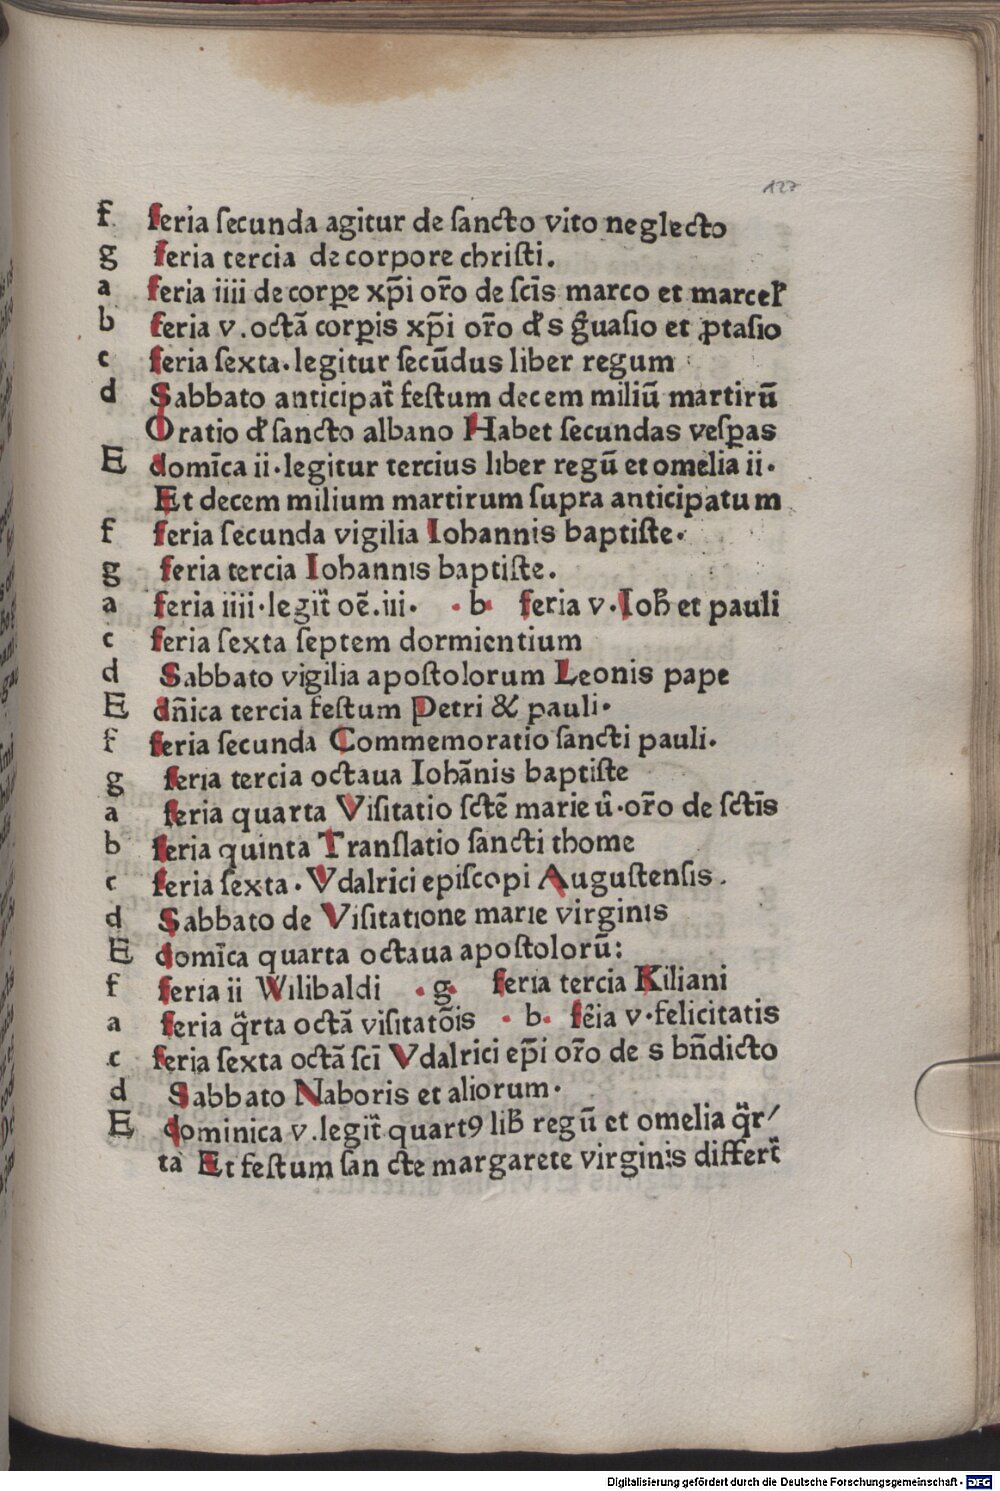 127
f feria ſecunda agitur de ſancto vito neglecto
g feria tercia de corpore chriſti.
a feria iiii de corpe xp̄i or̄o de ſcīs marco et marcel
b feria v. octā corpis xp̄i or̄o d s g̃uaſio et ꝓtaſio
c feria ſexta. legitur ſecūdus liber regum
d Sabbato anticipat feſtum decem miliū martirū
Oratio d ſancto albano Habet ſecundas veſꝑas
E domīca ii. legitur tercius liber regū et omelia ii.
Et decem milium martirum ſupra anticipatum
f feria ſecunda vigilia Iohannis baptiſte.
g feria tercia Iohannis baptiſte.
a feria iiii. legit oē. iii. . b. feria v. Ioh̄ et pauli
c feria ſexta ſeptem dormientium
d Sabbato vigilia apoſtolorum Leonis pape
E dn̄ica tercia feſtum Petri & pauli.
f feria ſecunda Commemoratio ſancti pauli.
g feria tercia octaua Iohānis baptiſte
a feria quarta Viſitatio ſctē marie ů. or̄o de ſctīs
b feria quinta Tranſlatio ſancti thome
c feria ſexta. Vdalrici epiſcopi Auguſtenſis.
d Sabbato de Viſitatione marie virginis
E domīca quarta octaua apoſtolorū:
f feria ii Wilibaldi . g. feria tercia Kiliani
a feria q̃rta octā viſitatōis . b. fēia v. felicitatis
c feria ſexta octā ſcī Vdalrici ep̄i or̄o de s bn̄dicto
d Sabbato Naboris et aliorum.
E dominica v. legit quartꝰ lib̄ regū et omelia q̃r/
ta Et feſtum ſancte margarete virginis differt
Digitalisierung gefördert durch die Deutsche Forschungsgemeinschaft - DFG